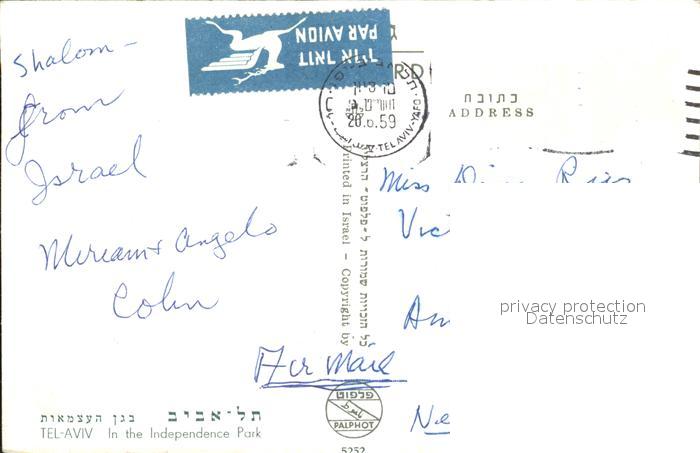 Shalom –
from
Israel
Miriam + Angelo
Cohn
דואר אויר
PAR AVION
RD
TEL AVIV-YAFO
20.6.59
כתובת
ADDRESS
Miss
Vic
Am
Air Mail
Ne
Printed in Israel – Copyright by
כל הזכויות שמורות ל"פלפוט" הרצליה
פלפוט
PALPHOT
5252
תל-אביב בגן העצמאות
TEL-AVIV In the Independence Park
privacy protection
Datenschutz